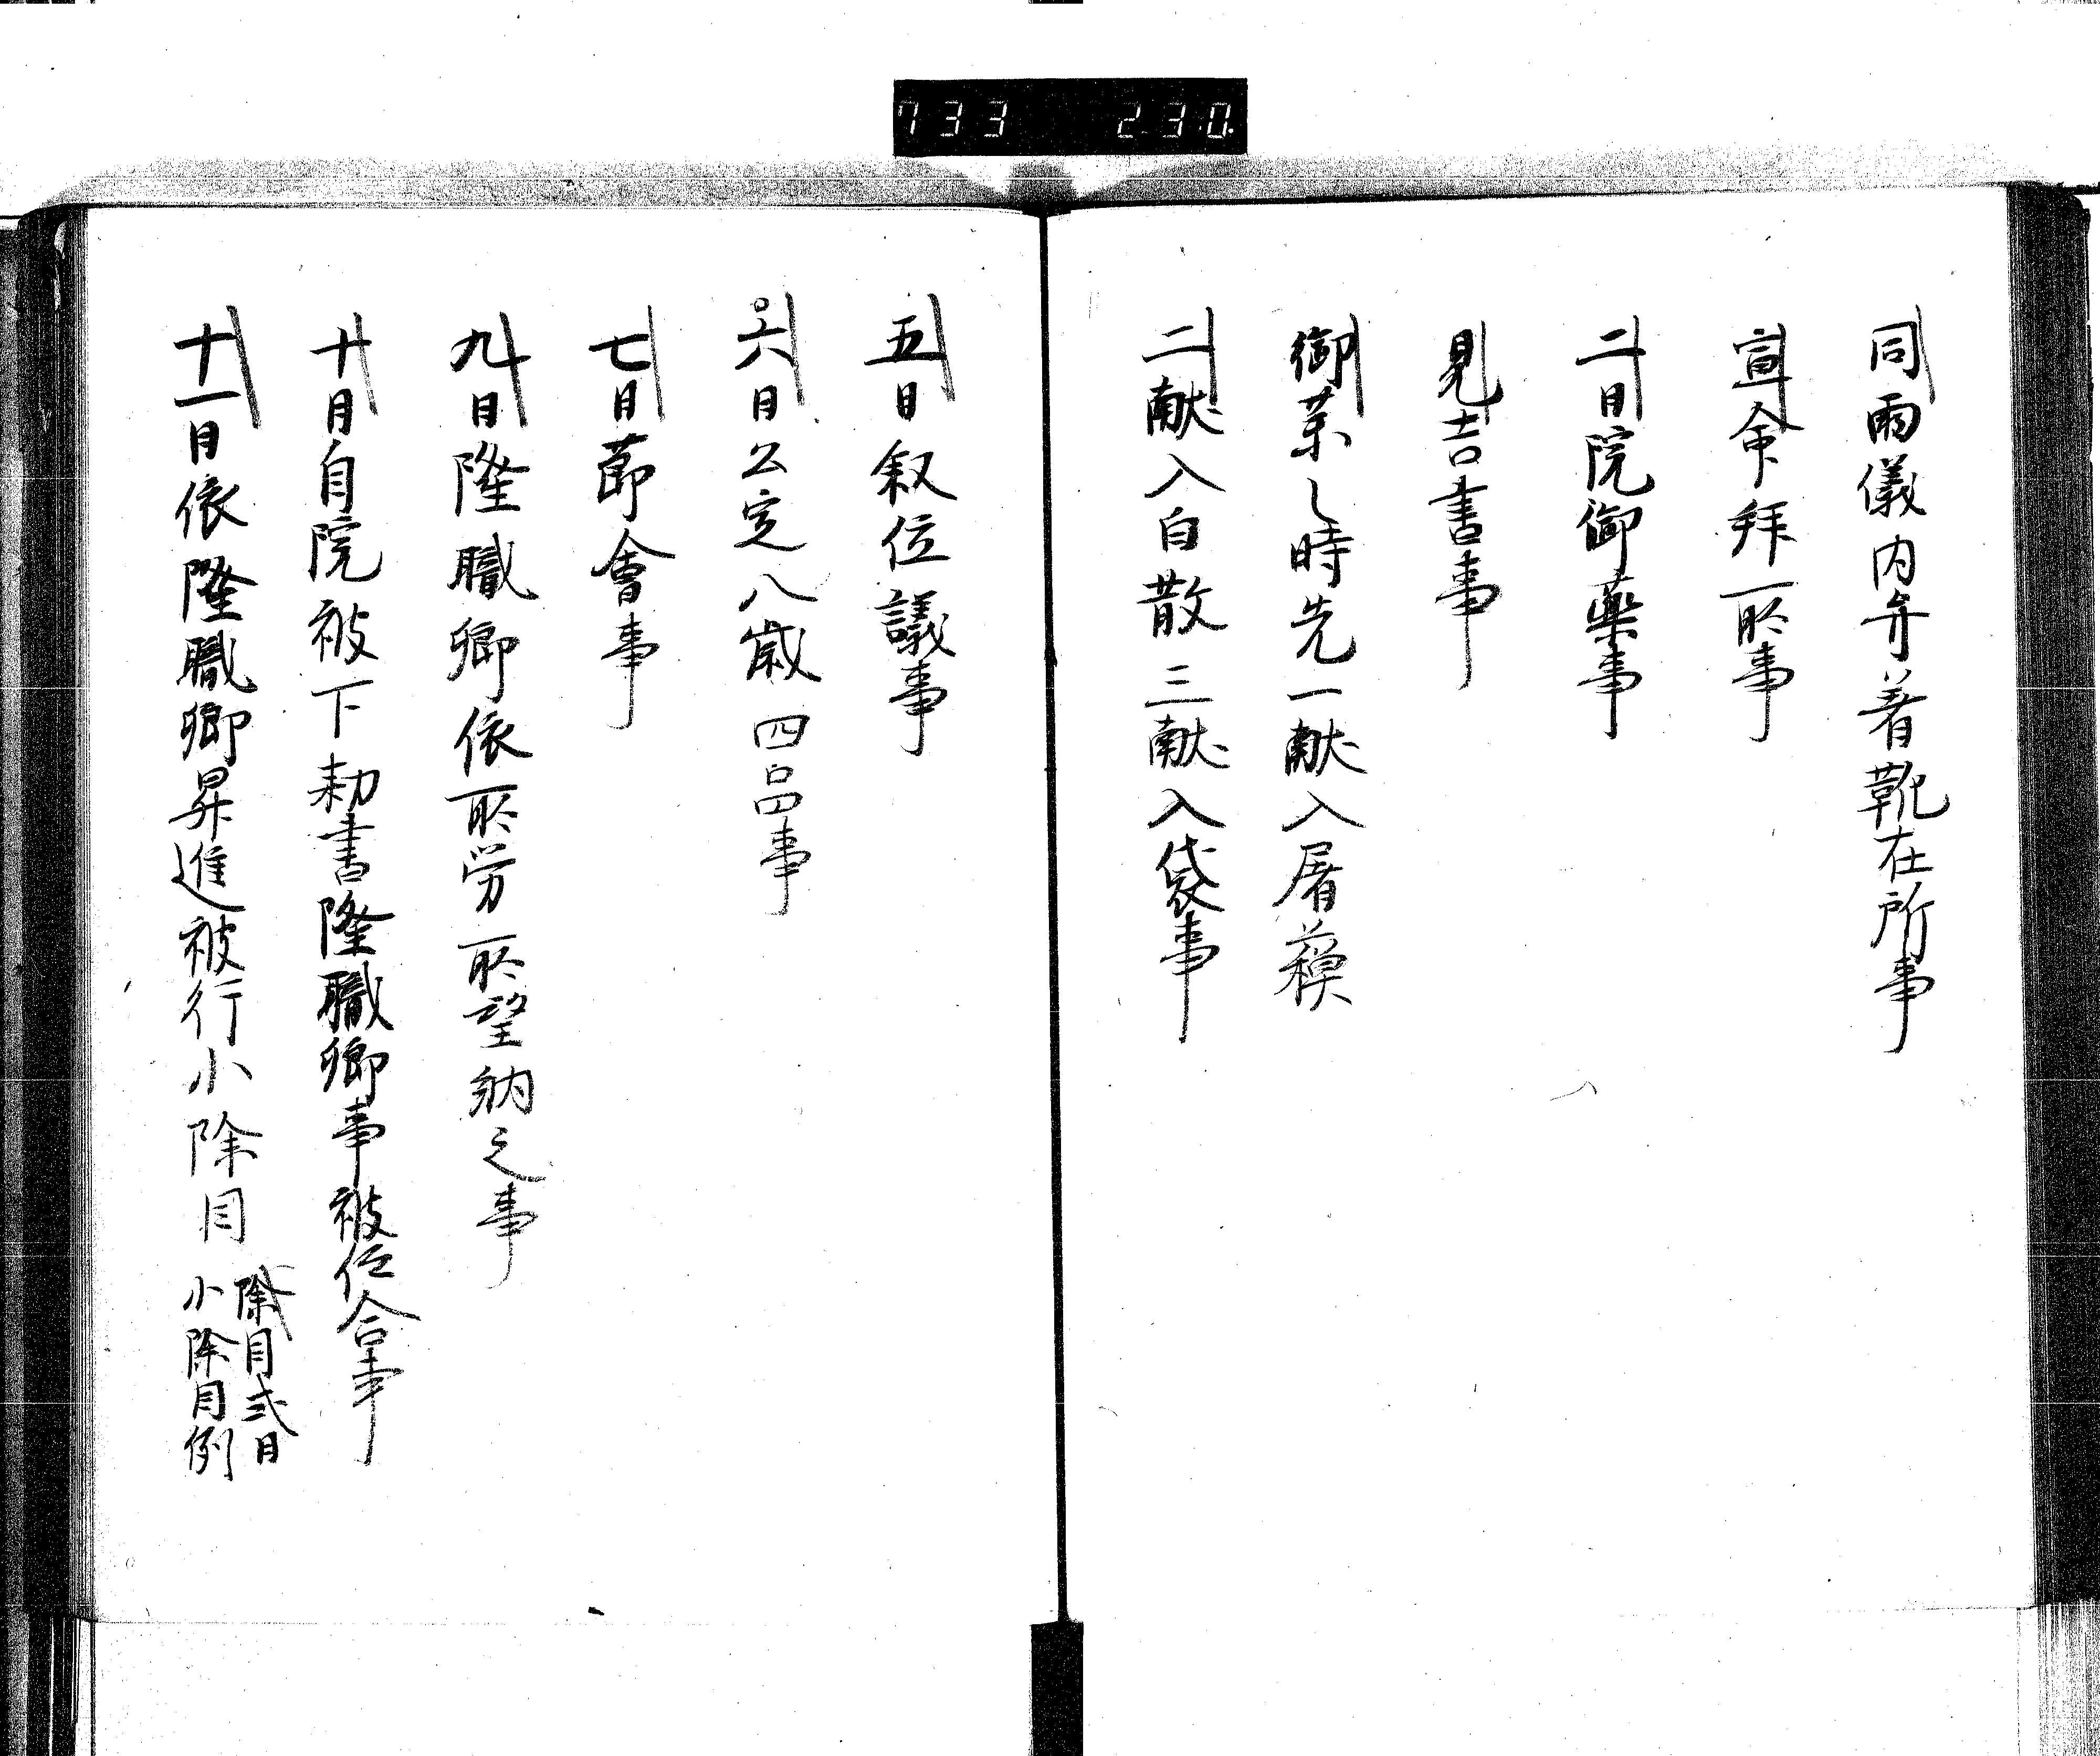 733 230.
同雨儀内弁著靴在所事
宣命拜所事
二日院御藥事
見吉書事
御薬之時先一献入屠蘇
二献入白散三献入袋事
五日叙位議事
六日公定八歳四品事
七日節會事
九日隆職卿依所労所望納之事
十日自院被下勅書隆職卿事被仰合事
十一日依隆職卿昇進被行小除目
除目式日
小除目例